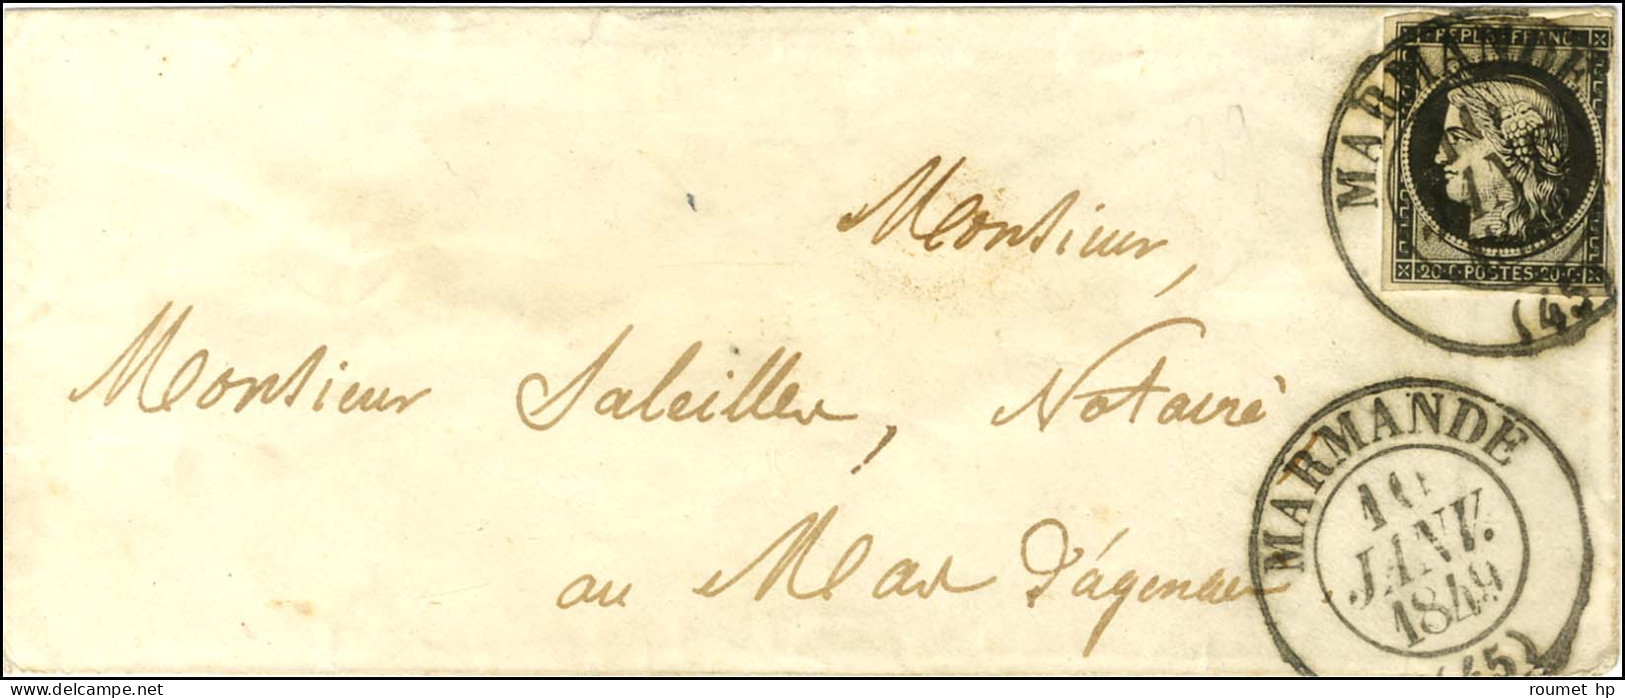 REPUB. FRANC.
20 C POSTES 20 C
MARMANDE
(45)
Monsieur,
Monsieur Saleilles, Notaire
au Mas d'agenais.
MARMANDE
10
JANV.
1849
(45)
roumet hp